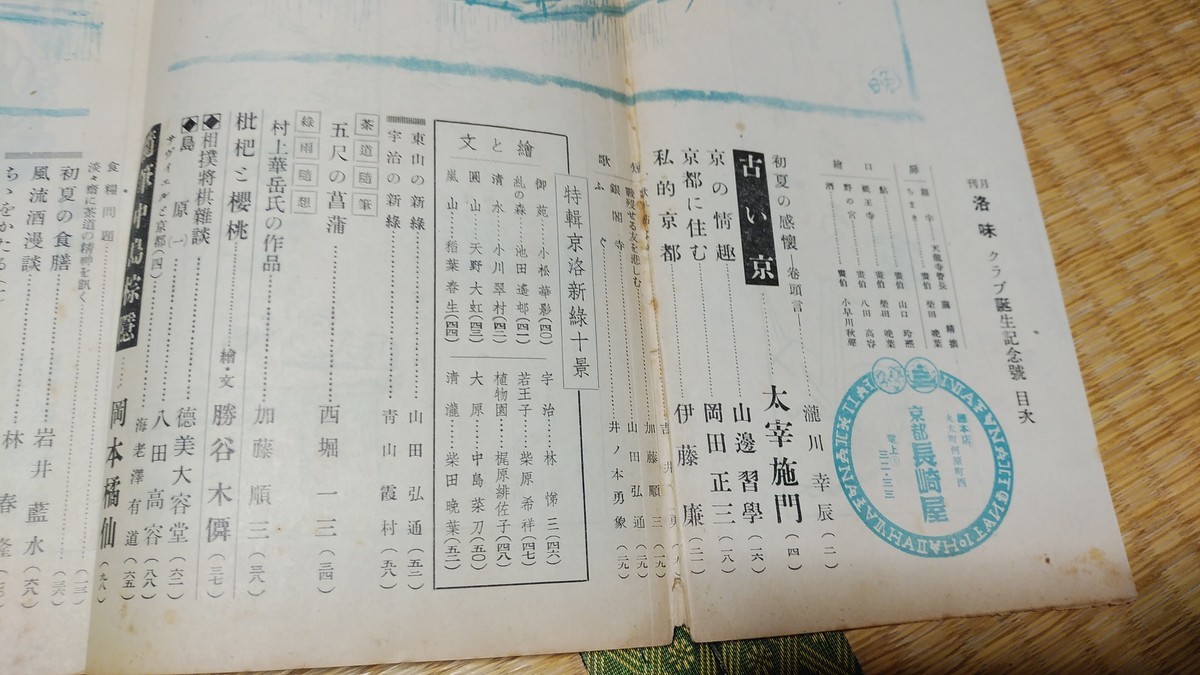 月刊 洛味 クラブ誕生記念號 目次
扉 ちまき 畫伯 山口 玲熙
口 鮎 畫伯 柴田 晩葉
祇王寺 畫伯 八田 高容
繪 野の宮 畫伯 小早川秋聲
酒
本店
丸太町河原町西
京都 長崎屋
電上
三二・三三
初夏の感懷―卷頭言 瀧川幸辰(二)
古い京 太宰施門(四)
京の情趣 山邊習學(一六)
京都に住む 岡田正三(一八)
私的京都 伊藤廉(二一)
歌
吉井勇
加藤順三(一九)
戰歿せる友を悲しむ 山田弘通(一九)
銀閣寺 井ノ本勇象(一九)
特輯京洛新綠十景
繪と文
御苑 小松華影(四〇)
糺の森 池田遙邨(四一)
清水 小川翠村(四二)
圓山 天野大虹(四三)
嵐山 稻葉春生(四四)
宇治 林悌三(四六)
若王子 柴原希祥(四七)
植物園 梶原緋佐子(四八)
大原 中島菜刀(五〇)
清瀧 柴田晩葉(五二)
東山の新綠 山田弘通(五二)
宇治の新綠 青山霞村(五八)
茶道隨筆
五尺の菖蒲 西堀一三(三四)
綠雨隨想
村上華岳氏の作品 加藤順三(三八)
枇杷と櫻桃 繪・文 勝谷木僲(三七)
◆相撲將棋雜談 德美大容堂(六二)
◆島原(一) 八田高容(八八)
サヴィエルと京都(四) 海老澤有道(六五)
岡本橘仙(九八)
食糧問題
淡々齋に茶道の精神を訊く
初夏の食膳
風流酒漫談 岩井藍水(六八)
林春隆